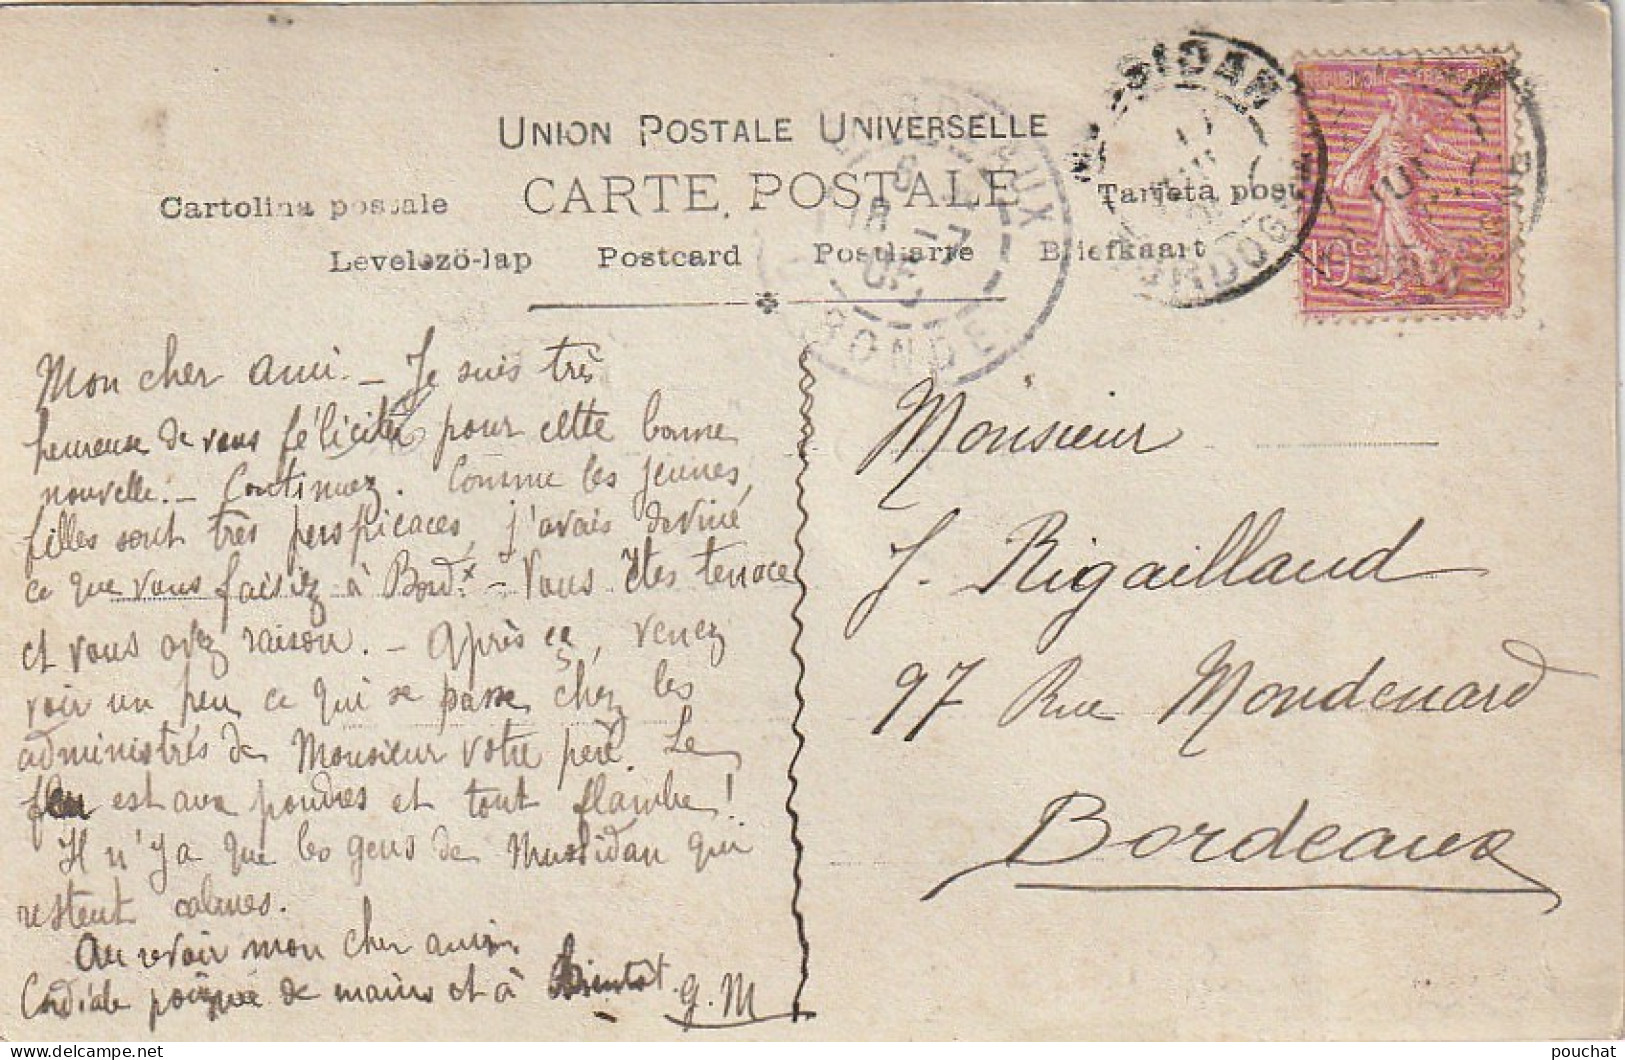 UNION POSTALE UNIVERSELLE
CARTE POSTALE
Cartolina postale
Tarjeta postal
Levelezö-lap Postcard Postkarte Briefkaart
MUSSIDAN
DORDOGNE
BORDEAUX
GIRONDE
REPUBLIQUE FRANÇAISE
10c
Mon cher ami. _ Je suis très
heureuse de vous féliciter pour cette bonne
nouvelle. _ Continuez. Comme les jeunes
filles sont très perspicaces, j'avais deviné
ce que vous faisiez à Bordx. _ Vous êtes tenace
et vous avez raison. _ Après ça, venez
voir un peu ce qui se passe chez les
administrés de Monsieur votre père. Le
feu est aux poudres et tout flambe!
Il n'y a que les gens de Mussidan qui
restent calmes.
Au revoir mon cher ami.
Cordiale poignée de mains et à Bientôt.
G. M
Monsieur
J. Rigaillaud
97 Rue Mondenard
Bordeaux
pouchat